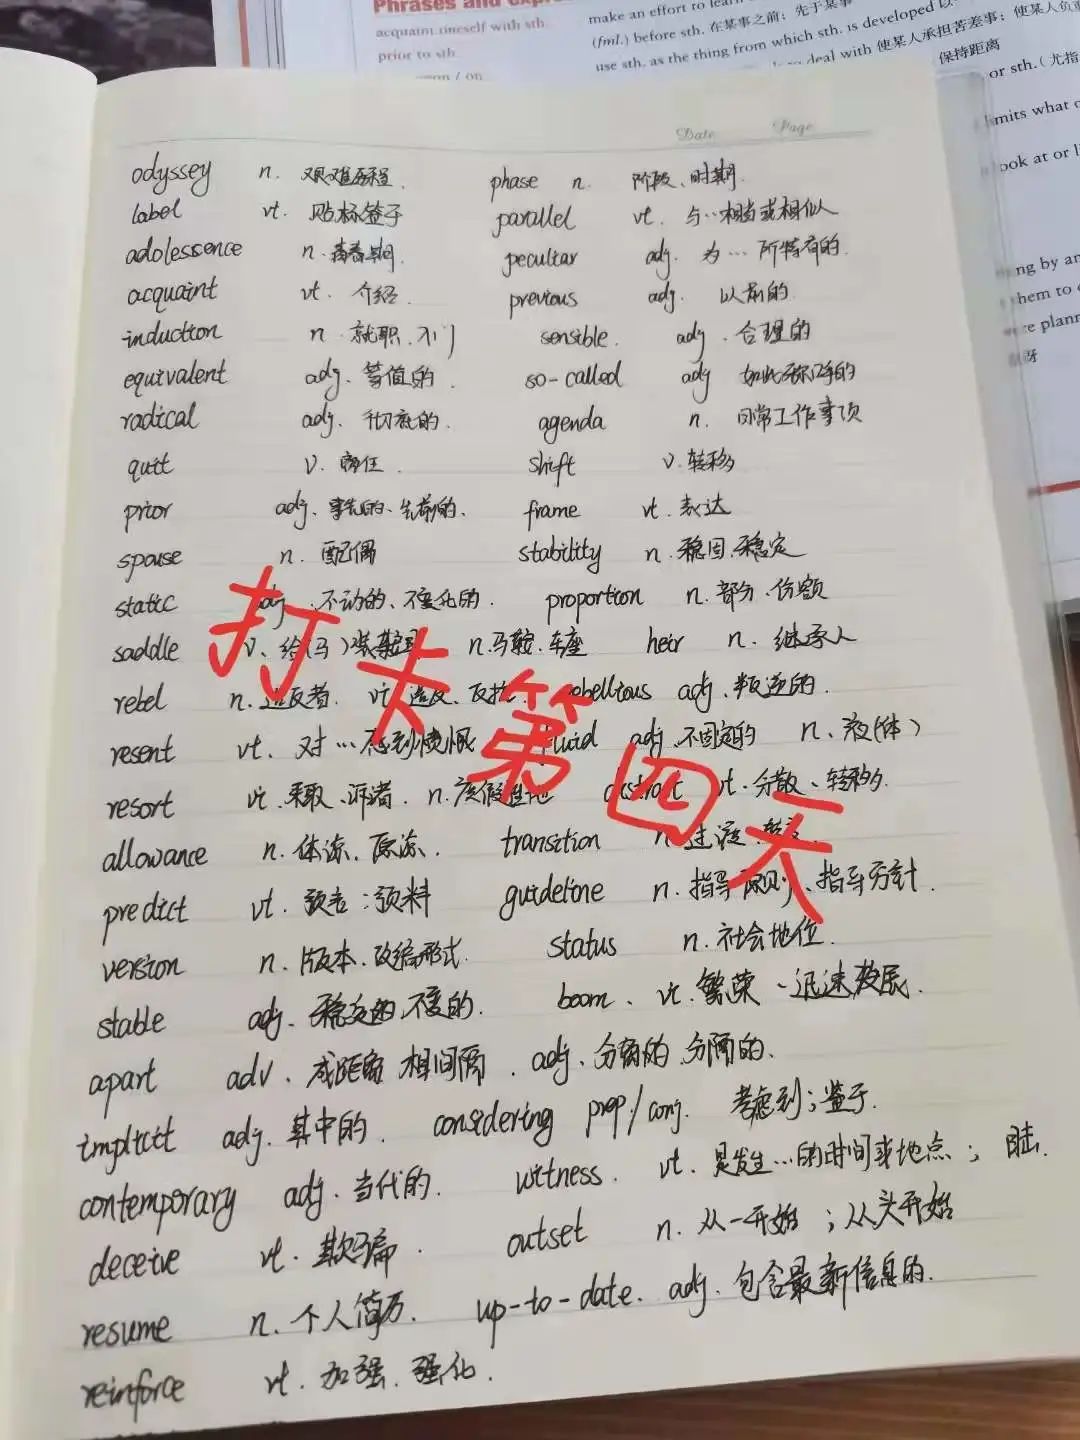 Phrases and exp
acquaint oneself with sth.
prior to sth.
make an effort to learn
(fml.) before sth. 在某事之前；先于某事
use sth. as the thing from which sth. is developed 以
deal with 使某人承担苦差事；使某人负
保持距离
or sth.（尤指
limits what
ook at or
ng by an
them to
re plann
Date Page
odyssey n. 艰难历程. phase n. 阶段、时期.
label vt. 贴标签于 parallel vt. 与…相当或相似
adolessence n. 青春期. peculiar adj. 为…所特有的.
acquaint vt. 介绍. previous adj. 以前的.
induction n. 就职、入门 sensible. adj. 合理的
equivalent adj. 等值的. so-called adj 如此称呼的
radical adj. 彻底的. agenda n. 日常工作事项
quit v. 离任. shift v. 转移
prior adj. 事先的、先前的. frame vt. 表达
spouse n. 配偶 stability n. 稳固、稳定
static adj. 不动的、不变化的. proportion n. 部分、份额
saddle v. 给(马)装鞍 n. 马鞍、车座 heir n. 继承人
rebel n. 造反者. vi 造反、反抗. rebellious adj. 叛逆的.
resent vt. 对…感到愤恨 fluid adj. 不固定的 n. 液(体)
resort vi. 采取、诉诸. n. 度假胜地 distract vt. 分散、转移.
allowance n. 体谅、原谅. transition n. 过渡、
predict vt. 预言；预料 guideline n. 指导原则、指导方针.
version n. 版本、改编形式. status n. 社会地位.
stable adj. 稳定的、不变的. boom. vi. 繁荣、迅速发展.
apart adv. 成距离 相间隔. adj. 分离的 分隔的.
implicit adj. 其中的. considering prep./conj. 考虑到；鉴于.
contemporary adj. 当代的. witness. vt. 是发生…的时间或地点； 目击.
deceive vt. 欺骗. outset n. 从一开始；从头开始
resume n. 个人简历. up-to-date. adj. 包含最新信息的.
reinforce vt. 加强、强化.
打卡第四天